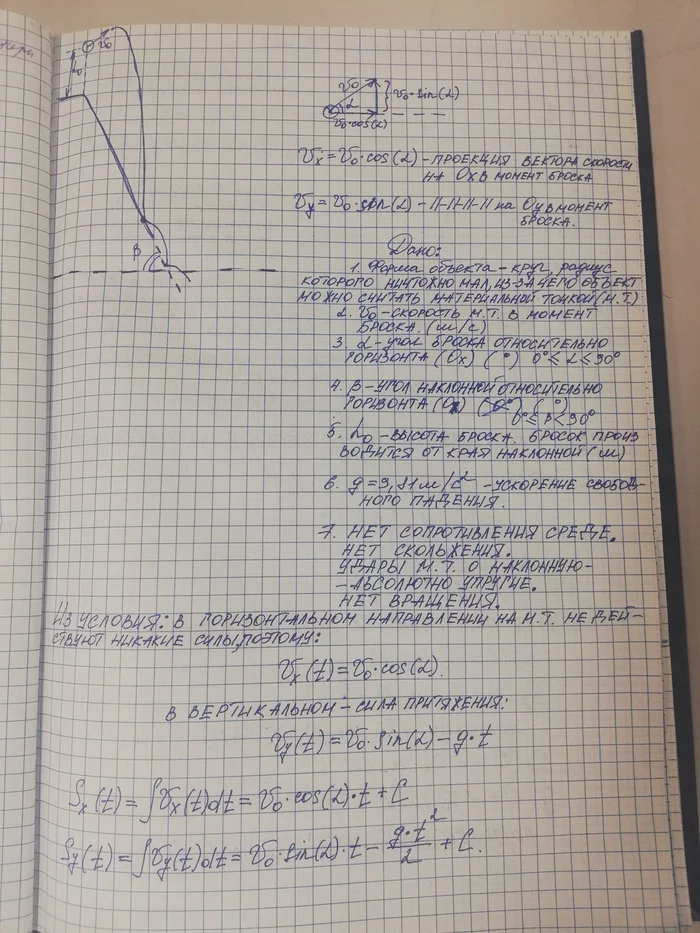 h₀
v₀
v₀
α
} v₀·sin(α)
v₀·cos(α)
β
Vx = V₀·cos(α) - ПРОЕКЦИЯ ВЕКТОРА СКОРОСТИ
НА Ox В МОМЕНТ БРОСКА
Vy = V₀·sin(α) - II-II-II-II на Oy В МОМЕНТ
БРОСКА.
Дано:
1. Форма объекта - круг, радиус
КОТОРОГО НИЧТОЖНО МАЛ, ИЗ-ЗА ЧЕГО ОБЪЕКТ
МОЖНО СЧИТАТЬ МАТЕРИАЛЬНОЙ ТОЧКОЙ (М.Т.)
2. V₀ - СКОРОСТЬ М.Т. В МОМЕНТ
БРОСКА. (м/с)
3. α - УГОЛ БРОСКА ОТНОСИТЕЛЬНО
ГОРИЗОНТА (Ox) (°) 0° ≤ α ≤ 90°
4. β - УГОЛ НАКЛОННОЙ ОТНОСИТЕЛЬНО
ГОРИЗОНТА (Ox) (°)
0° ≤ β < 90°
5. h₀ - ВЫСОТА БРОСКА. БРОСОК ПРОИЗ
ВОДИТСЯ ОТ КРАЯ НАКЛОННОЙ (м)
6. g = 9,81 м/с² - УСКОРЕНИЕ СВОБОД-
НОГО ПАДЕНИЯ.
7. НЕТ СОПРОТИВЛЕНИЯ СРЕДЕ.
НЕТ СКОЛЬЖЕНИЯ.
УДАРЫ М.Т. О НАКЛОННУЮ-
- АБСОЛЮТНО УПРУГИЕ.
НЕТ ВРАЩЕНИЯ.
ИЗ УСЛОВИЯ: В ГОРИЗОНТАЛЬНОМ НАПРАВЛЕНИИ НА М.Т. НЕ ДЕЙ-
СТВУЮТ НИКАКИЕ СИЛЫ, ПОЭТОМУ:
Vx(t) = V₀·cos(α).
В ВЕРТИКАЛЬНОМ - СИЛА ПРИТЯЖЕНИЯ:
Vy(t) = V₀·sin(α) - g·t
Sx(t) = ∫Vx(t)dt = V₀·cos(α)·t + C
Sy(t) = ∫Vy(t)dt = V₀·sin(α)·t - g·t²/2 + C.